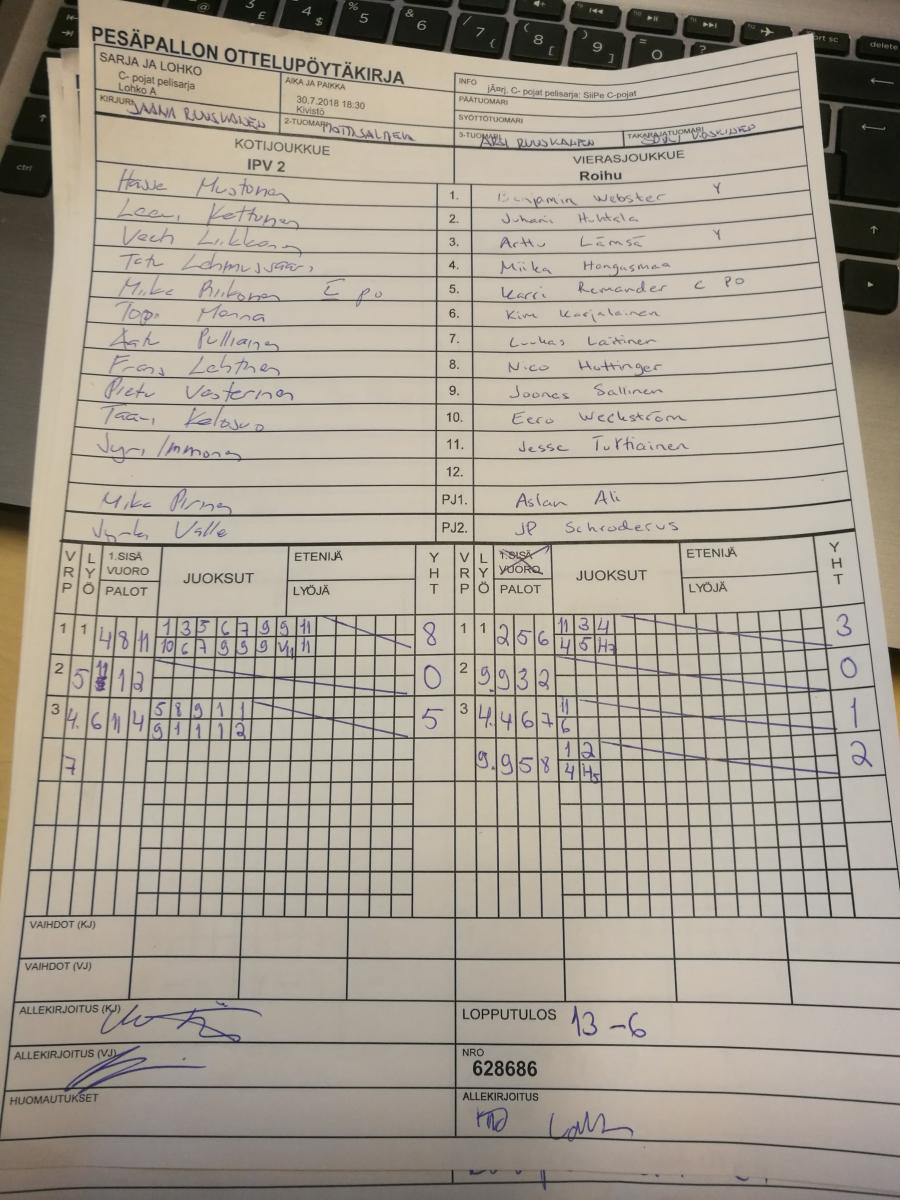 PESÄPALLON OTTELUPÖYTÄKIRJA
SARJA JA LOHKO
C- pojat pelisarja
Lohko A
AIKA JA PAIKKA
30.7.2018 18:30
Kivistö
INFO
jÃ¤rj, C- pojat pelisarja: SiiPe C-pojat
PÄÄTUOMARI
SYÖTTÖTUOMARI
KIRJURI JAANA RUUSKANEN
2-TUOMARI
3-TUOMARI ARSI RUUSKANEN
TAKARAJATUOMARI
KOTIJOUKKUE
IPV 2
VIERASJOUKKUE
Roihu
Hasse Mustonen 1. Benjamin Webster Y
Leevi Kettunen 2. Juhani Huhtala
3. Arttu Lämsä Y
Tatu 4. Miika Hongasmaa
Miika Riikonen C po 5. Karri Remander C PO
Topi Manna 6. Kim Karjalainen
Aatu Pulliainen 7. Luukas Laitinen
Frans Lehtinen 8. Nico Huttinger
Pietu Vesterinen 9. Joonas Sallinen
10. Eero Weckström
Jyri Immonen 11. Jesse Tuttiainen
12.
PJ1. Aslan Ali
Valle PJ2. JP Schroderus
VRP LYÖ 1.SISÄ VUORO PALOT JUOKSUT ETENIJÄ LYÖJÄ YHT VRP LYÖ 1.SISÄ VUORO PALOT JUOKSUT ETENIJÄ LYÖJÄ YHT
1 1 4 8 11 1 3 5 6 7 9 9 11 8 1 1 2 5 6 11 3 4 3
10 6 7 9 9 9 11 4 5
2 5 11 1 2 0 2 9. 9 3 2 0
3 4. 6 11 4 5 8 9 1 1 5 3 4. 4 6 7 11 1
9 1 1 1 2 6
7 9. 9 5 8 1 2 2
4
VAIHDOT (KJ)
VAIHDOT (VJ)
ALLEKIRJOITUS (KJ)
LOPPUTULOS 13-6
ALLEKIRJOITUS (VJ)
NRO
628686
HUOMAUTUKSET
ALLEKIRJOITUS